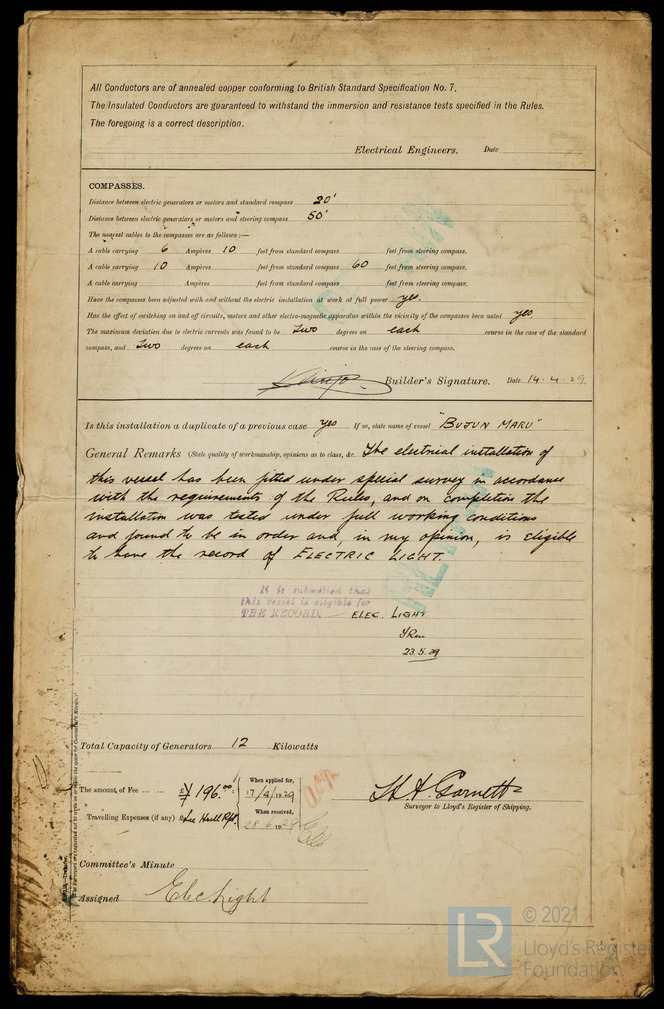 All Conductors are of annealed copper conforming to British Standard Specification No. 7.
The Insulated Conductors are guaranteed to withstand the immersion and resistance tests specified in the Rules.
The foregoing is a correct description.
Electrical Engineers. Date
COMPASSES.
Distance between electric generators or motors and standard compass 20'
Distance between electric generators or motors and steering compass 50'
The nearest cables to the compasses are as follows:—
A cable carrying 6 Ampères 10 feet from standard compass feet from steering compass.
A cable carrying 10 Ampères feet from standard compass 60 feet from steering compass.
A cable carrying Ampères feet from standard compass feet from steering compass.
Have the compasses been adjusted with and without the electric installation at work at full power yes.
Has the effect of switching on and off circuits, motors and other electro-magnetic apparatus within the vicinity of the compasses been noted yes
The maximum deviation due to electric currents was found to be Two degrees on each course in the case of the standard
compass, and Two degrees on each course in the case of the steering compass.
Builder's Signature. Date 14-4-29
Is this installation a duplicate of a previous case yes If so, state name of vessel "BUJUN MARU"
General Remarks (State quality of workmanship, opinions as to class, &c. The electrical installation of )
this vessel has been fitted under special survey in accordance
with the requirements of the Rules, and on completion the
installation was tested under full working conditions
and found to be in order and, in my opinion, is eligible
to have the record of ELECTRIC LIGHT.
It is submitted that
this vessel is eligible for
THE RECORD. ELEC. LIGHT
23.5.29
Total Capacity of Generators 12 Kilowatts
The amount of Fee ... ... ¥ 196.00
When applied for,
17/4/1929
Travelling Expenses (if any) £ See Hull Rpt.
When received,
28.6.1929
H. A. Garnett
Surveyor to Lloyd's Register of Shipping.
Committee's Minute
Assigned Elec Light
LR
© 2021
Lloyd's Register
Foundation